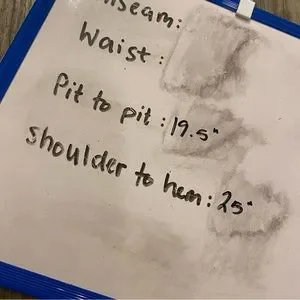 Waist:
Pit to pit: 19.5"
Shoulder to hem: 25"